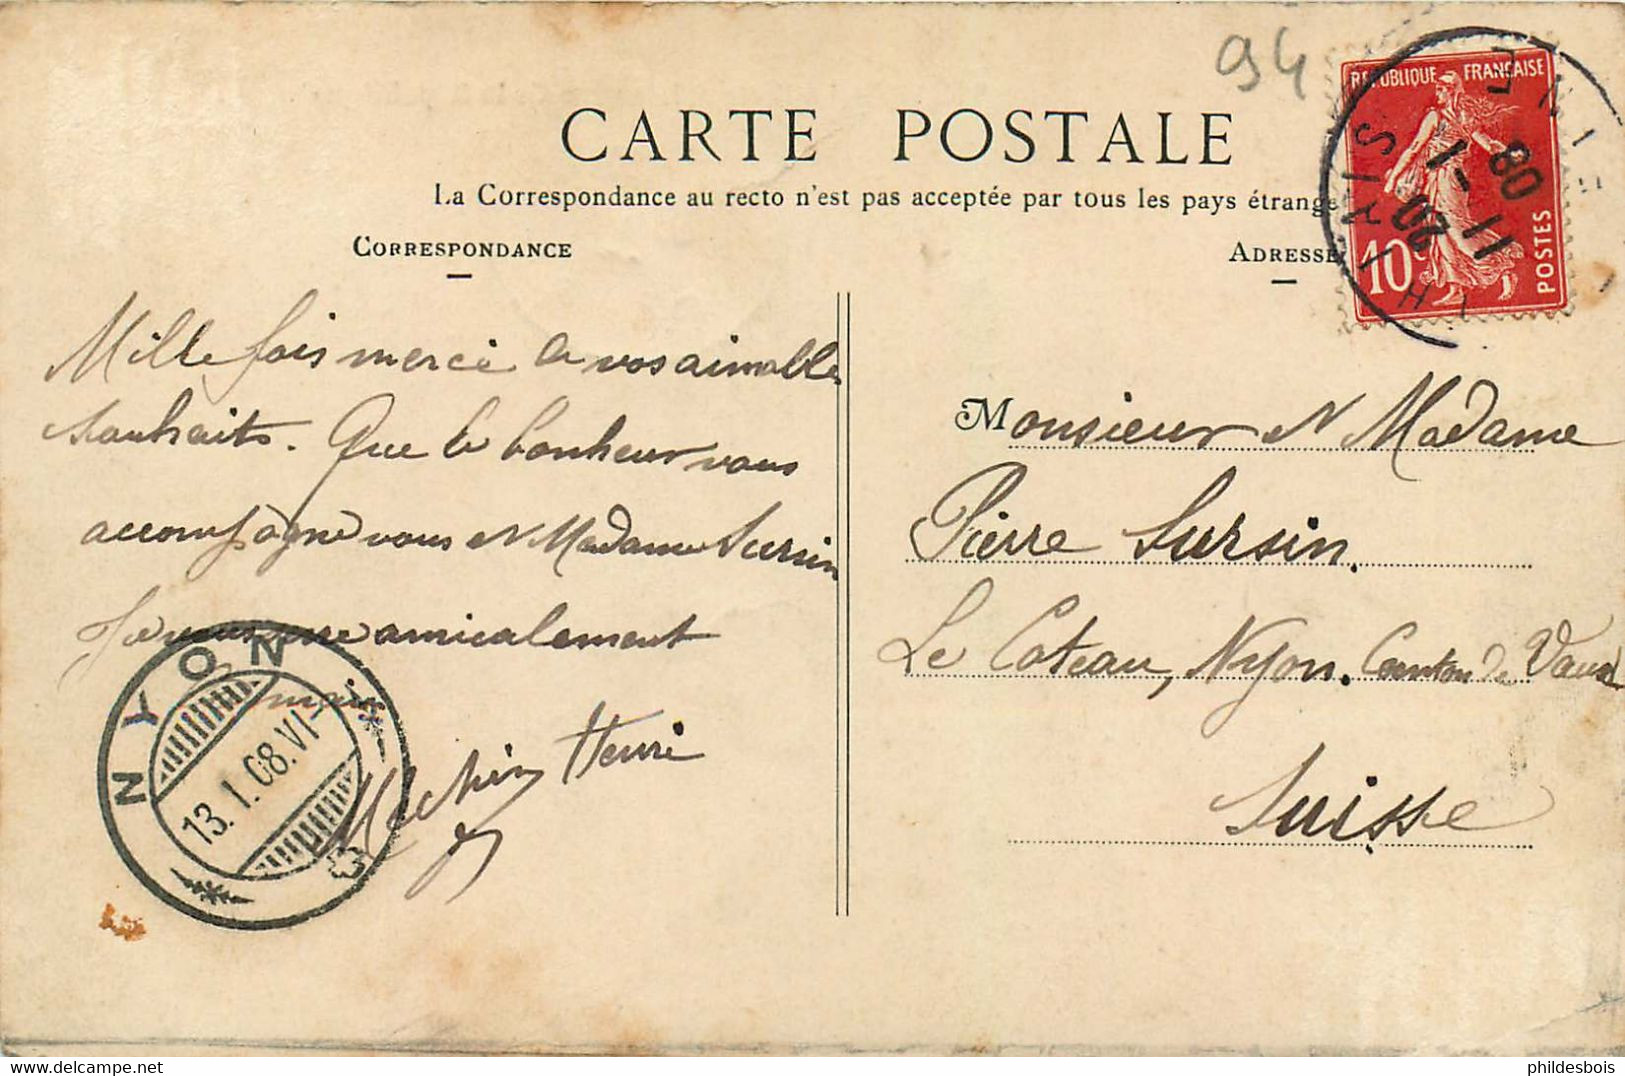 94
CARTE POSTALE
La Correspondance au recto n'est pas acceptée par tous les pays étrange
CORRESPONDANCE
ADRESSE
REPUBLIQUE FRANÇAISE
10c
POSTES
11 1
20
08
Mille fois merci de vos aimables
souhaits. Que le bonheur vous
accompagne vous et Madame Sursin
Je vous serre amicalement
main
Henri
NYON
13.I.08.VI
Monsieur et Madame
Pierre Sursin.
Le Coteau, Nyon. Canton de Vaud
Suisse
delcampe.net
phildesbois